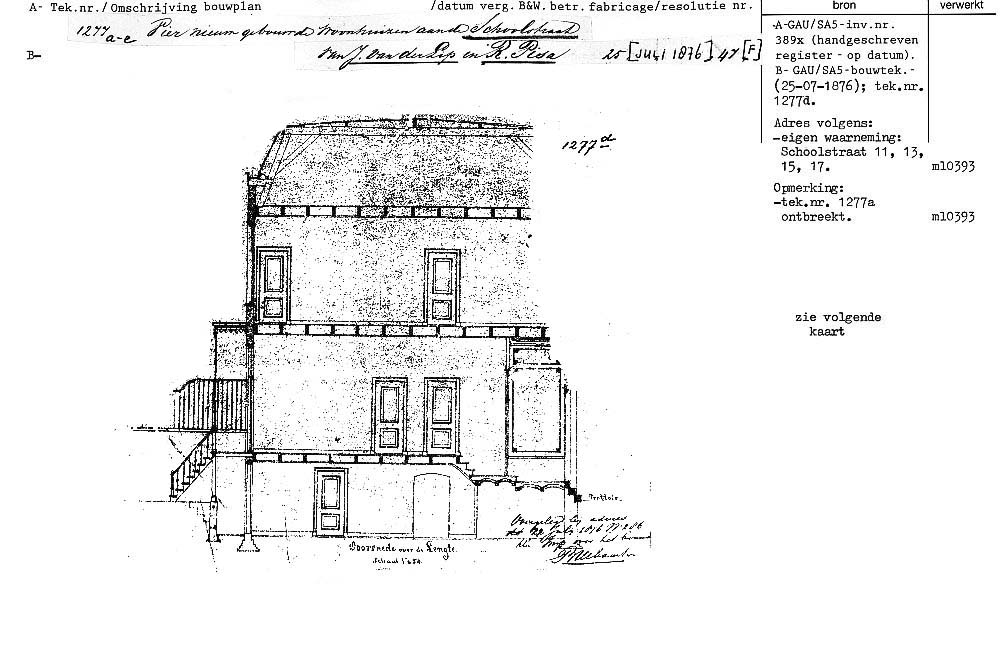 A- Tek.nr./Omschrijving bouwplan /datum verg. B&W. betr. fabricage/resolutie nr. bron verwerkt
1277 a-e Vier nieuw gebouwde Woonhuizen aan de Schoolstraat
B- van J. van der Lip en R. Pisa 25 [JULI 1876] 47 [F]
-A-GAU/SA5-inv.nr.
389x (handgeschreven
register - op datum).
B- GAU/SA5-bouwtek.-
(25-07-1876); tek.nr.
1277d.
Adres volgens:
-eigen waarneming:
Schoolstraat 11, 13,
15, 17. ml0393
Opmerking:
-tek.nr. 1277a
ontbreekt. ml0393
zie volgende
kaart
1277d
Trottoir.
Overgelegd bij adres
Juli 1876 N
over het
Doorsnede over de Lengte.
Schaal 1 à 50.